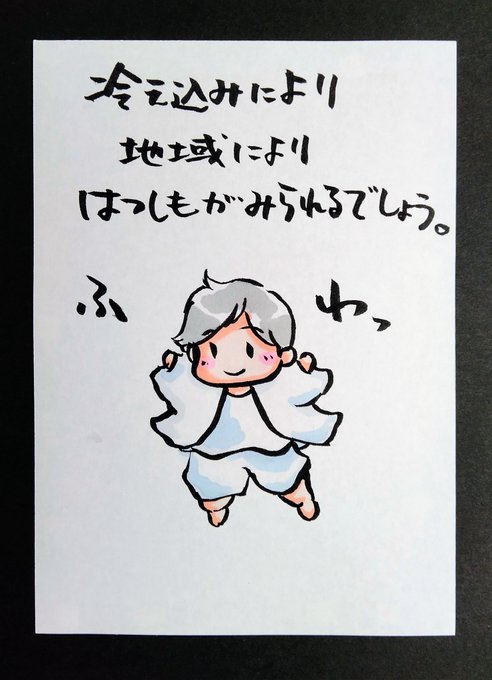 冷え込みにより
地域により
はつしもがみられるでしょう。
ふわっ